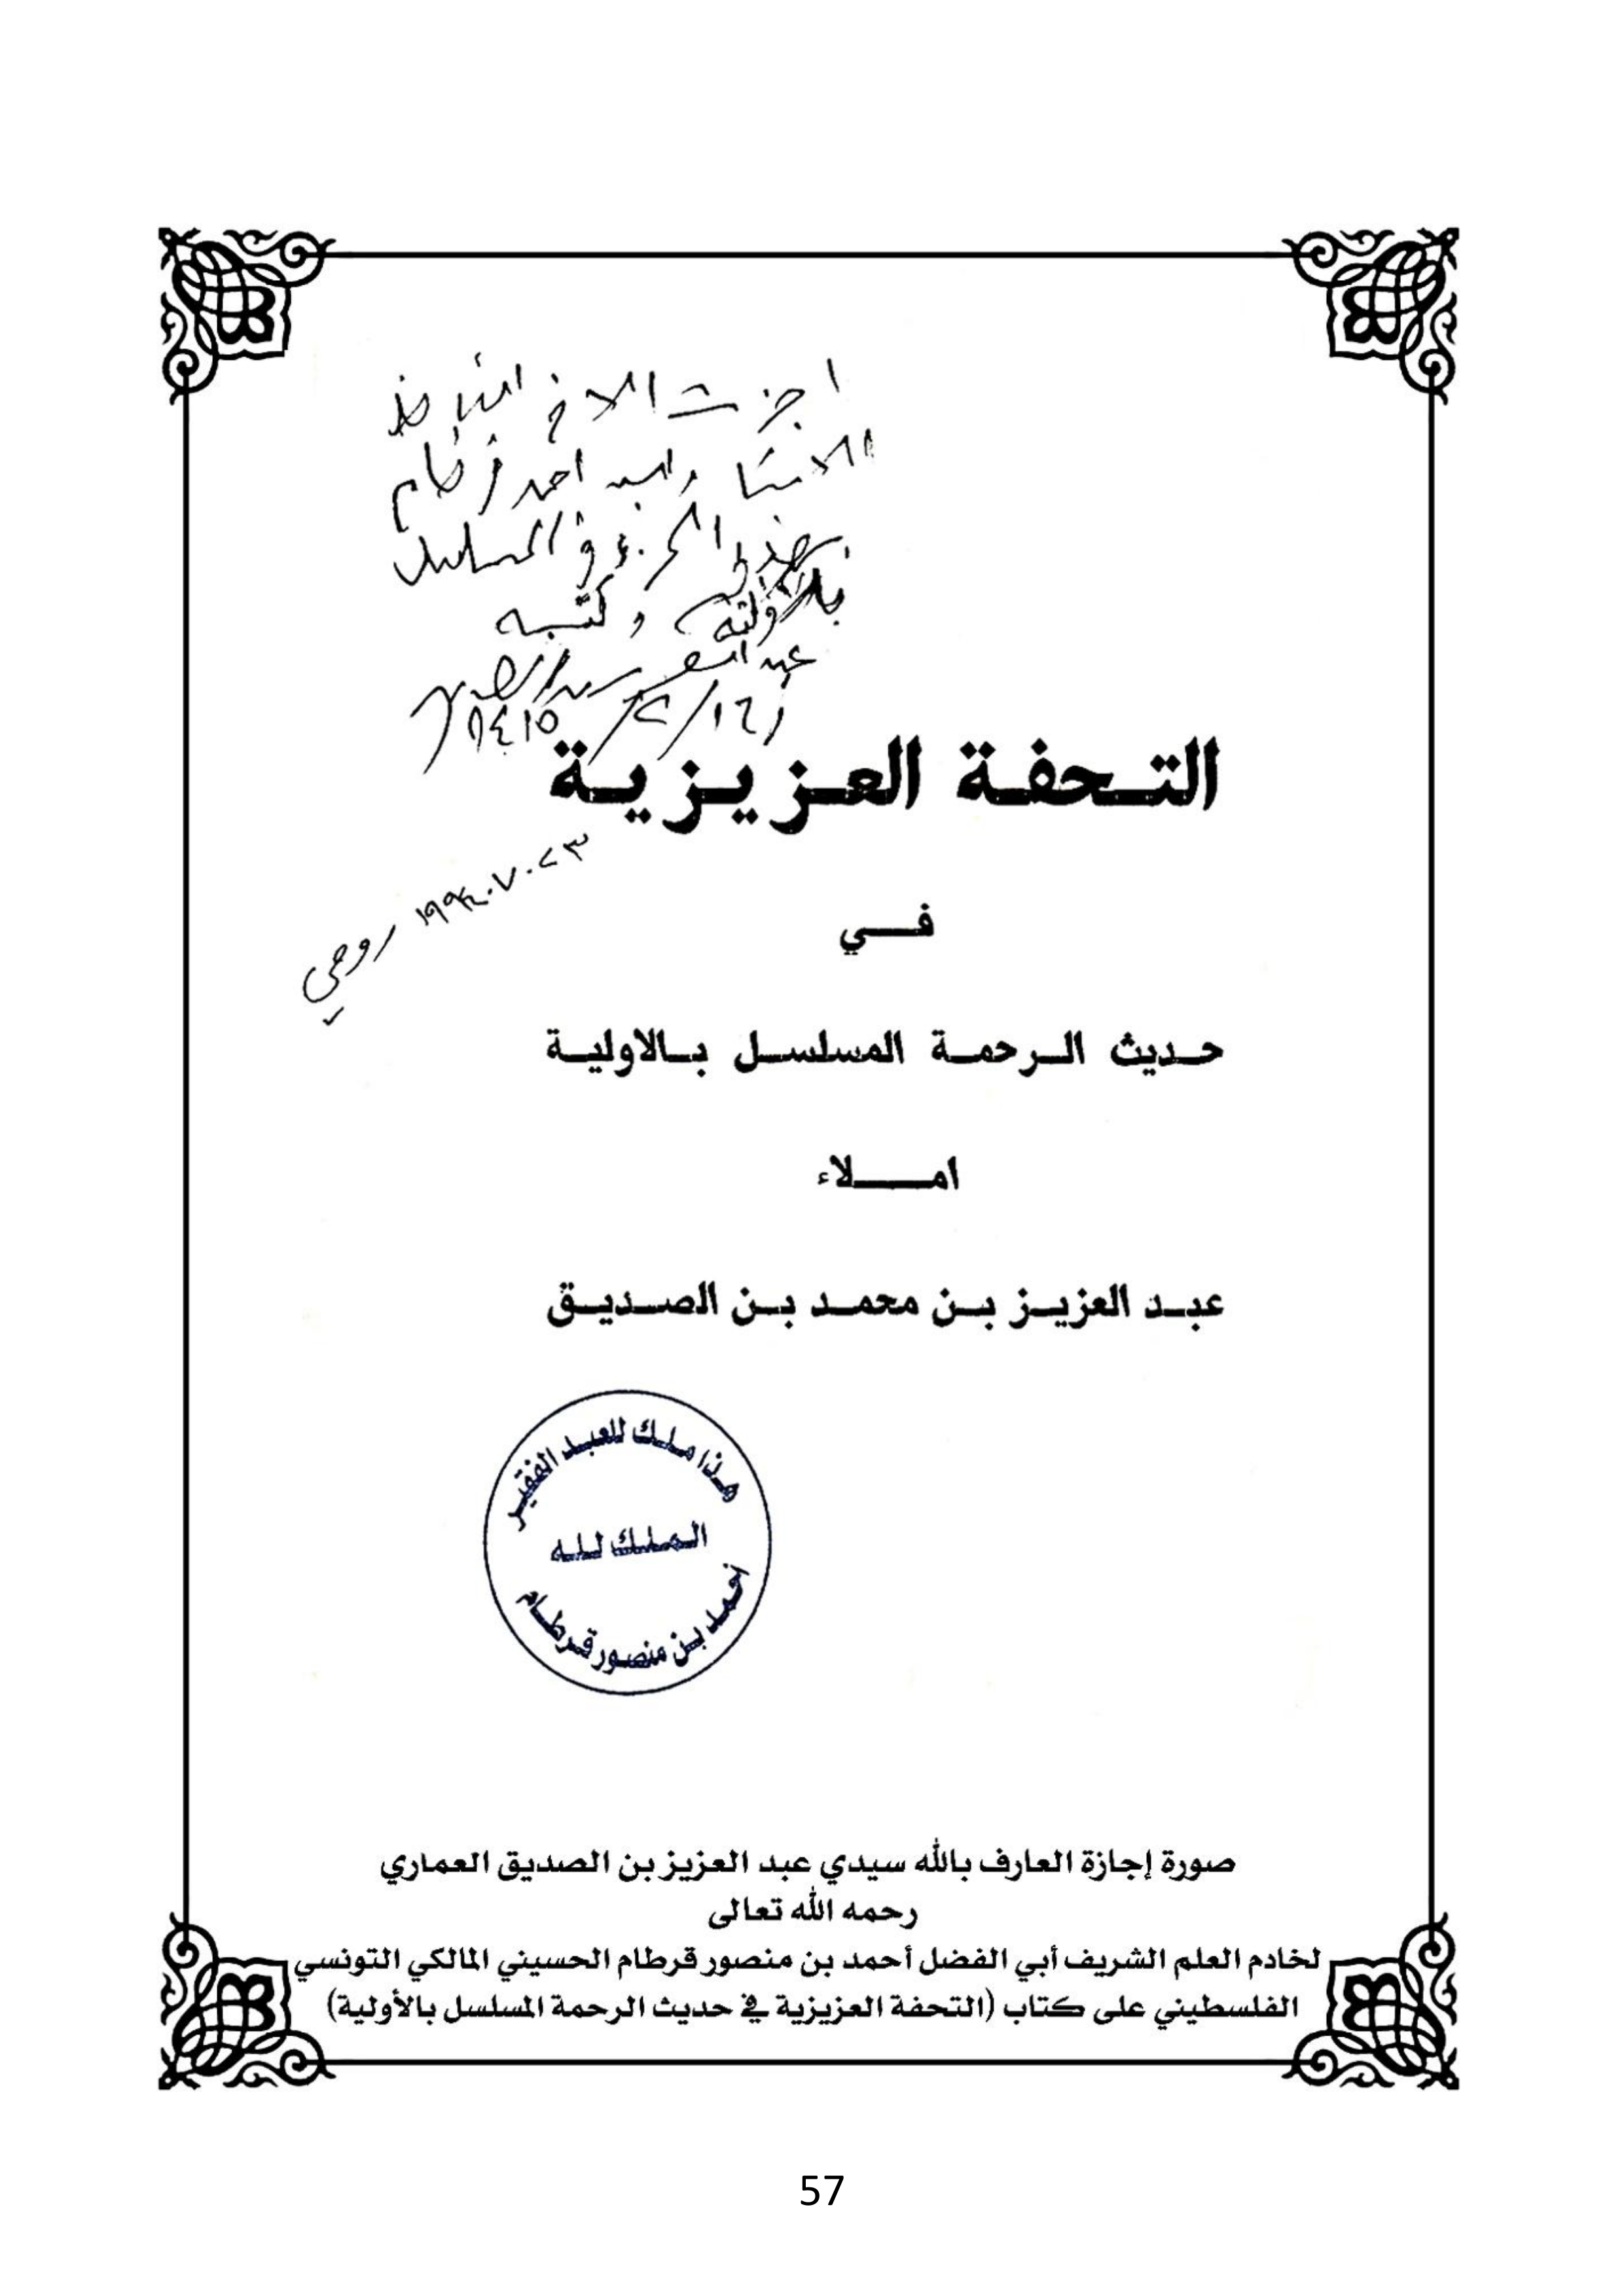 اجزت الاخ الفاضل
الاستاذ السيد احمد قرطام
بهذا الجزء والمسلسل
بالاولية وكتبه
عبد العزيز بن الصديق
التحفة العزيزية
روحي
في
حديث الرحمة المسلسل بالاولية
املاء
عبد العزيز بن محمد بن الصديق
هذا ملك للعبد الفقير
الملك لله
أحمد بن منصور قرطام
صورة إجازة العارف بالله سيدي عبد العزيز بن الصديق الغماري
رحمه الله تعالى
لخادم العلم الشريف أبي الفضل أحمد بن منصور قرطام الحسيني المالكي التونسي
الفلسطيني على كتاب (التحفة العزيزية في حديث الرحمة المسلسل بالأولية)
57